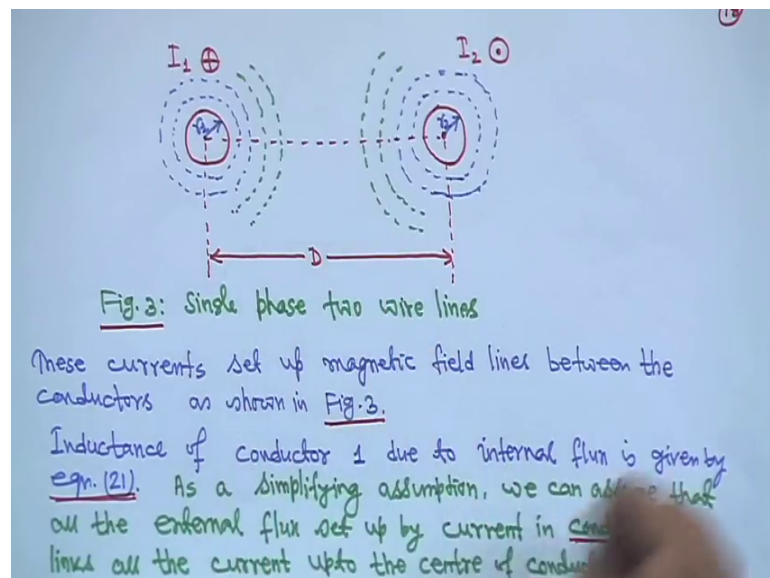 I₁ ⊕
I₂ ⊙
D
Fig.3: Single phase two wire lines
These currents set up magnetic field lines between the
conductors as shown in Fig.3.
Inductance of conductor 1 due to internal flux is given by
eqn.(21). As a simplifying assumption, we can that
all the external flux set up by current in
links all the current upto the centre of